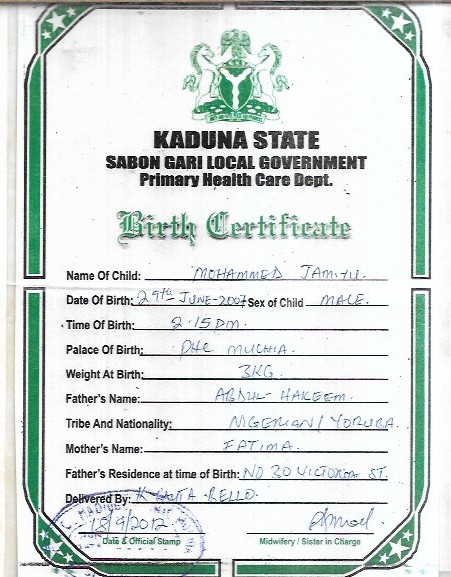 KADUNA STATE
SABON GARI LOCAL GOVERNMENT
Primary Health Care Dept.
Birth Certificate
Name Of Child: MOHAMMED JAMIYU.
Date Of Birth: 29th JUNE-2007 Sex of Child MALE.
Time Of Birth: 2-15pm.
Palace Of Birth: PHC MUCHIA.
Weight At Birth: 3KG
Father's Name: ABDUL-HAKEEM.
Tribe And Nationality: NIGERIAN/YORUBA.
Mother's Name: FATIMA.
Father's Residence at time of Birth: NO 30 VICTORIA ST.
Delivered By: BELLO.
18/9/2012
Date & Official Stamp Midwifery / Sister in Charge